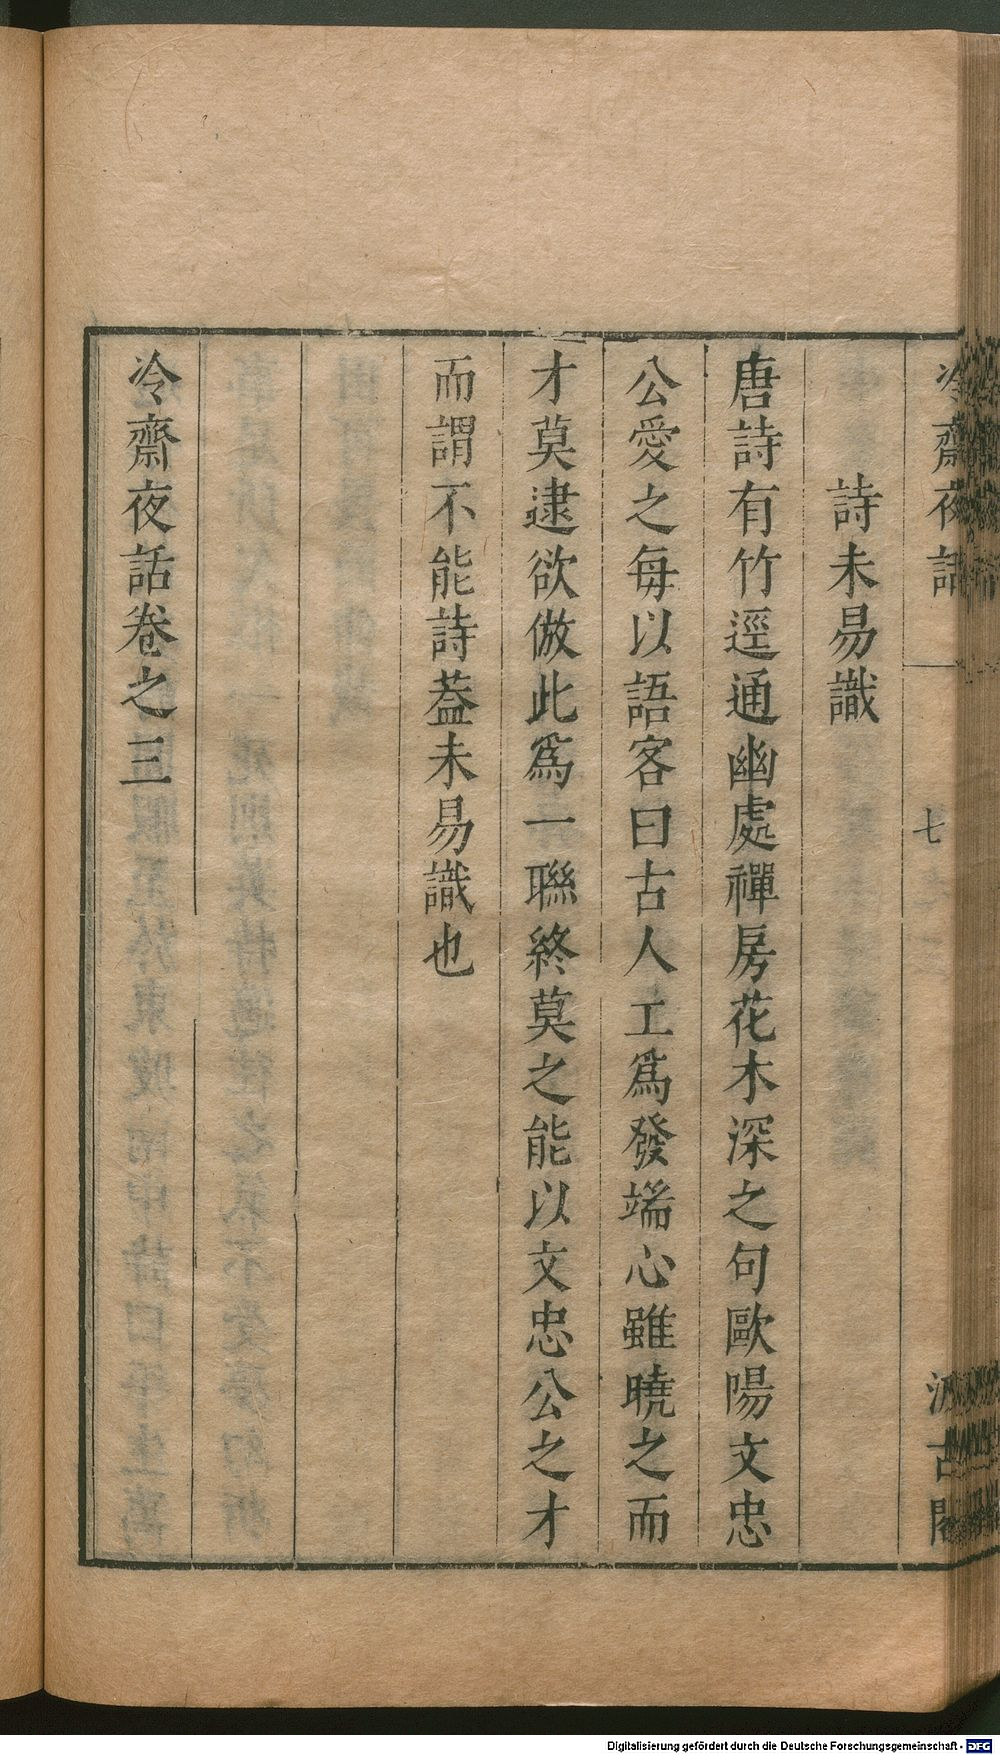 冷齋夜話
七
汲古閣
詩未易識
唐詩有竹逕通幽處禪房花木深之句歐陽文忠
公愛之每以語客曰古人工爲發端心雖曉之而
才莫逮欲倣此爲一聯終莫之能以文忠公之才
而謂不能詩葢未易識也
冷齋夜話卷之三
Digitalisierung gefördert durch die Deutsche Forschungsgemeinschaft - DFG